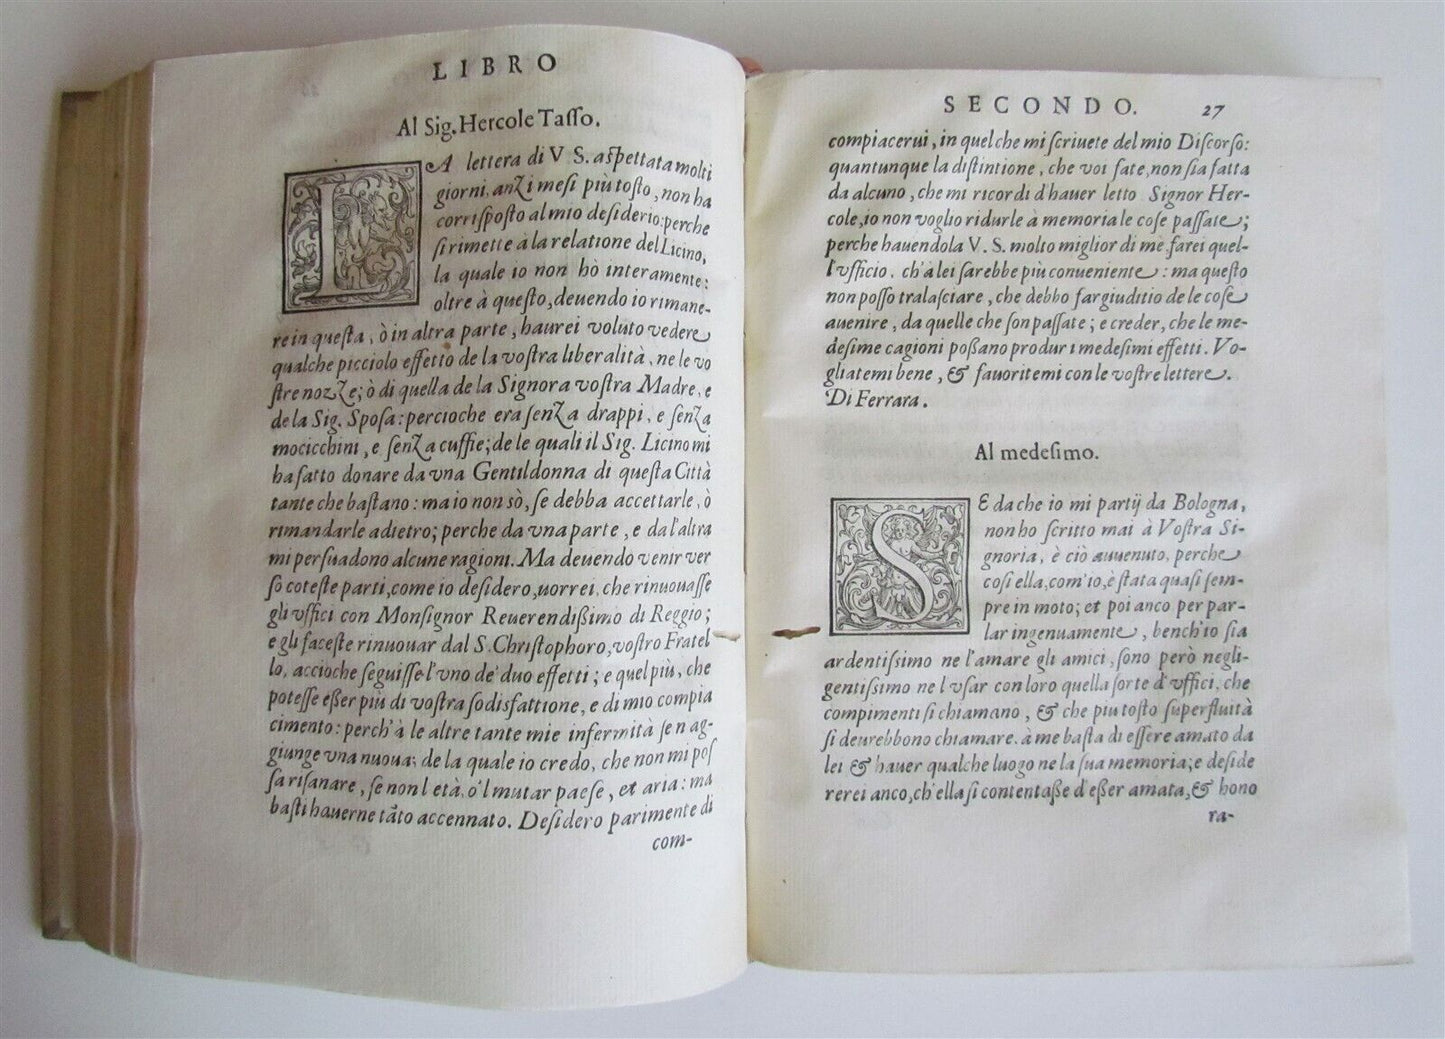 LIBRO
Al Sig. Hercole Tasso.
LA lettera di V S. aspettata molti
giorni, anzi mesi più tosto, non ha
corrisposto al mio desiderio: perche
si rimette à la relatione del Licino,
la quale io non hò interamente:
oltre à questo, deuendo io rimane-
re in questa, ò in altra parte, haurei voluto vedere
qualche picciolo effetto de la vostra liberalità, ne le vo
stre nozze; ò di quella de la Signora vostra Madre, e
de la Sig. Sposa: percioche era senza drappi, e senza
mocicchini, e senza cuffie; de le quali il Sig. Licino mi
ha fatto donare da vna Gentildonna di questa Città
tante che bastano: ma io non sò, se debba accettarle, ò
rimandarle adietro; perche da vna parte, e da l'altra
mi persuadono alcune ragioni. Ma deuendo venir ver
so coteste parti, come io desidero, uorrei, che rinuouasse
gli vffici con Monsignor Reuerendissimo di Reggio;
e gli faceste rinuouar dal S. Christophoro, vostro Fratel
lo, accioche seguisse l'uno de' duo effetti; e quel più, che
potesse esser più di vostra sodisfattione, e di mio compia
cimento: perch'à le altre tante mie infermità sen ag-
giunge vna nuoua; de la quale io credo, che non mi pos
sa risanare, se non l età, o'l mutar paese, et aria: ma
basti hauerne tãto accennato. Desidero parimente di
com-
SECONDO. 27
compiacerui, in quel che mi scriuete del mio Discorso:
quantunque la distintione, che voi fate, non sia fatta
da alcuno, che mi ricordi d'hauer letto Signor Her-
cole, io non voglio ridurle à memoria le cose passate;
perche hauendola V. S. molto miglior di me farei quel-
l'vfficio, ch'à lei sarebbe più conueniente: ma questo
non posso tralasciare, che debbo far giuditio de le cose
auenire, da quelle che son passate; e creder, che le me-
desime cagioni possano produr i medesimi effetti. Vo-
gliatemi bene, & fauoritemi con le vostre lettere.
Di Ferrara.
Al medesimo.
SE da che io mi partij da Bologna,
non ho scritto mai à Vostra Si-
gnoria, è ciò auuenuto, perche
cosi ella, com'io, è stata quasi sem-
pre in moto; et poi anco per par-
lar ingenuamente, bench'io sia
ardentissimo ne l'amare gli amici, sono però negli-
gentissimo ne l'vsar con loro quella sorte d'vffici, che
compimenti si chiamano, & che piu tosto superfluità
si deurebbono chiamare. à me basta di essere amato da
lei & hauer qualche luogo ne la sua memoria; e deside
rerei anco, ch'ella si contentasse d'esser amata, & hono
ra-